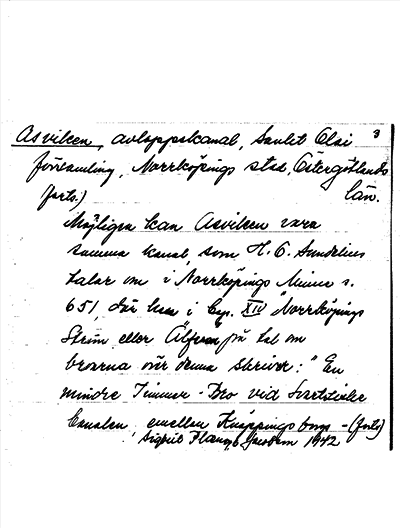 Asviken, avloppskanal, Sankt Olai 3
församling, Norrköpings stad, Östergötlands
(forts.) län.
Möjligen kan Asviken vara
samma kanal, som H. O. Sundelius
talar om i Norrköpings Minne s.
651, där han i Cap. XIV "Norrköpings
Ström eller Älfven" på tal om
broarna över denna skriver: "En
mindre Timmer-Bro vid
Canalen, emellan Knäppingsborgs- (forts)
Sigrid Jacobson 1942